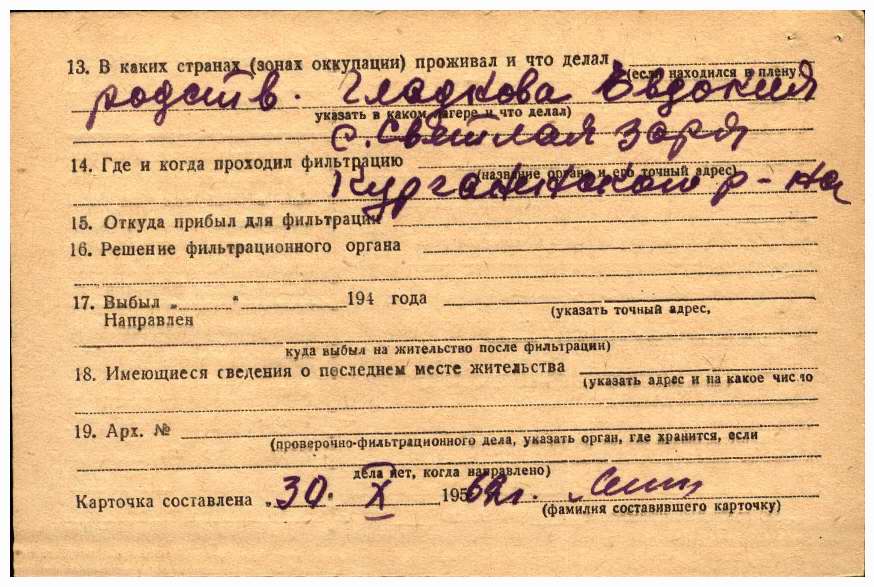 13. В каких странах (зонах оккупации) проживал и что делал
(если находился в плену,
родств. Гладкова Евдокия
указать в каком лагере и что делал)
с. Светлая заря
14. Где и когда проходил фильтрацию
(название органа и его точный адрес)
Курганинского р-на
15. Откуда прибыл для фильтрации
16. Решение фильтрационного органа
17. Выбыл „ " 194 года
(указать точный адрес,
Направлен
куда выбыл на жительство после фильтрации)
18. Имеющиеся сведения о последнем месте жительства
(указать адрес и на какое число
19. Арх. №
(проверочно-фильтрационного дела, указать орган, где хранится, если
дела нет, когда направлено)
Карточка составлена „30. X 1962г.
(фамилия составившего карточку)